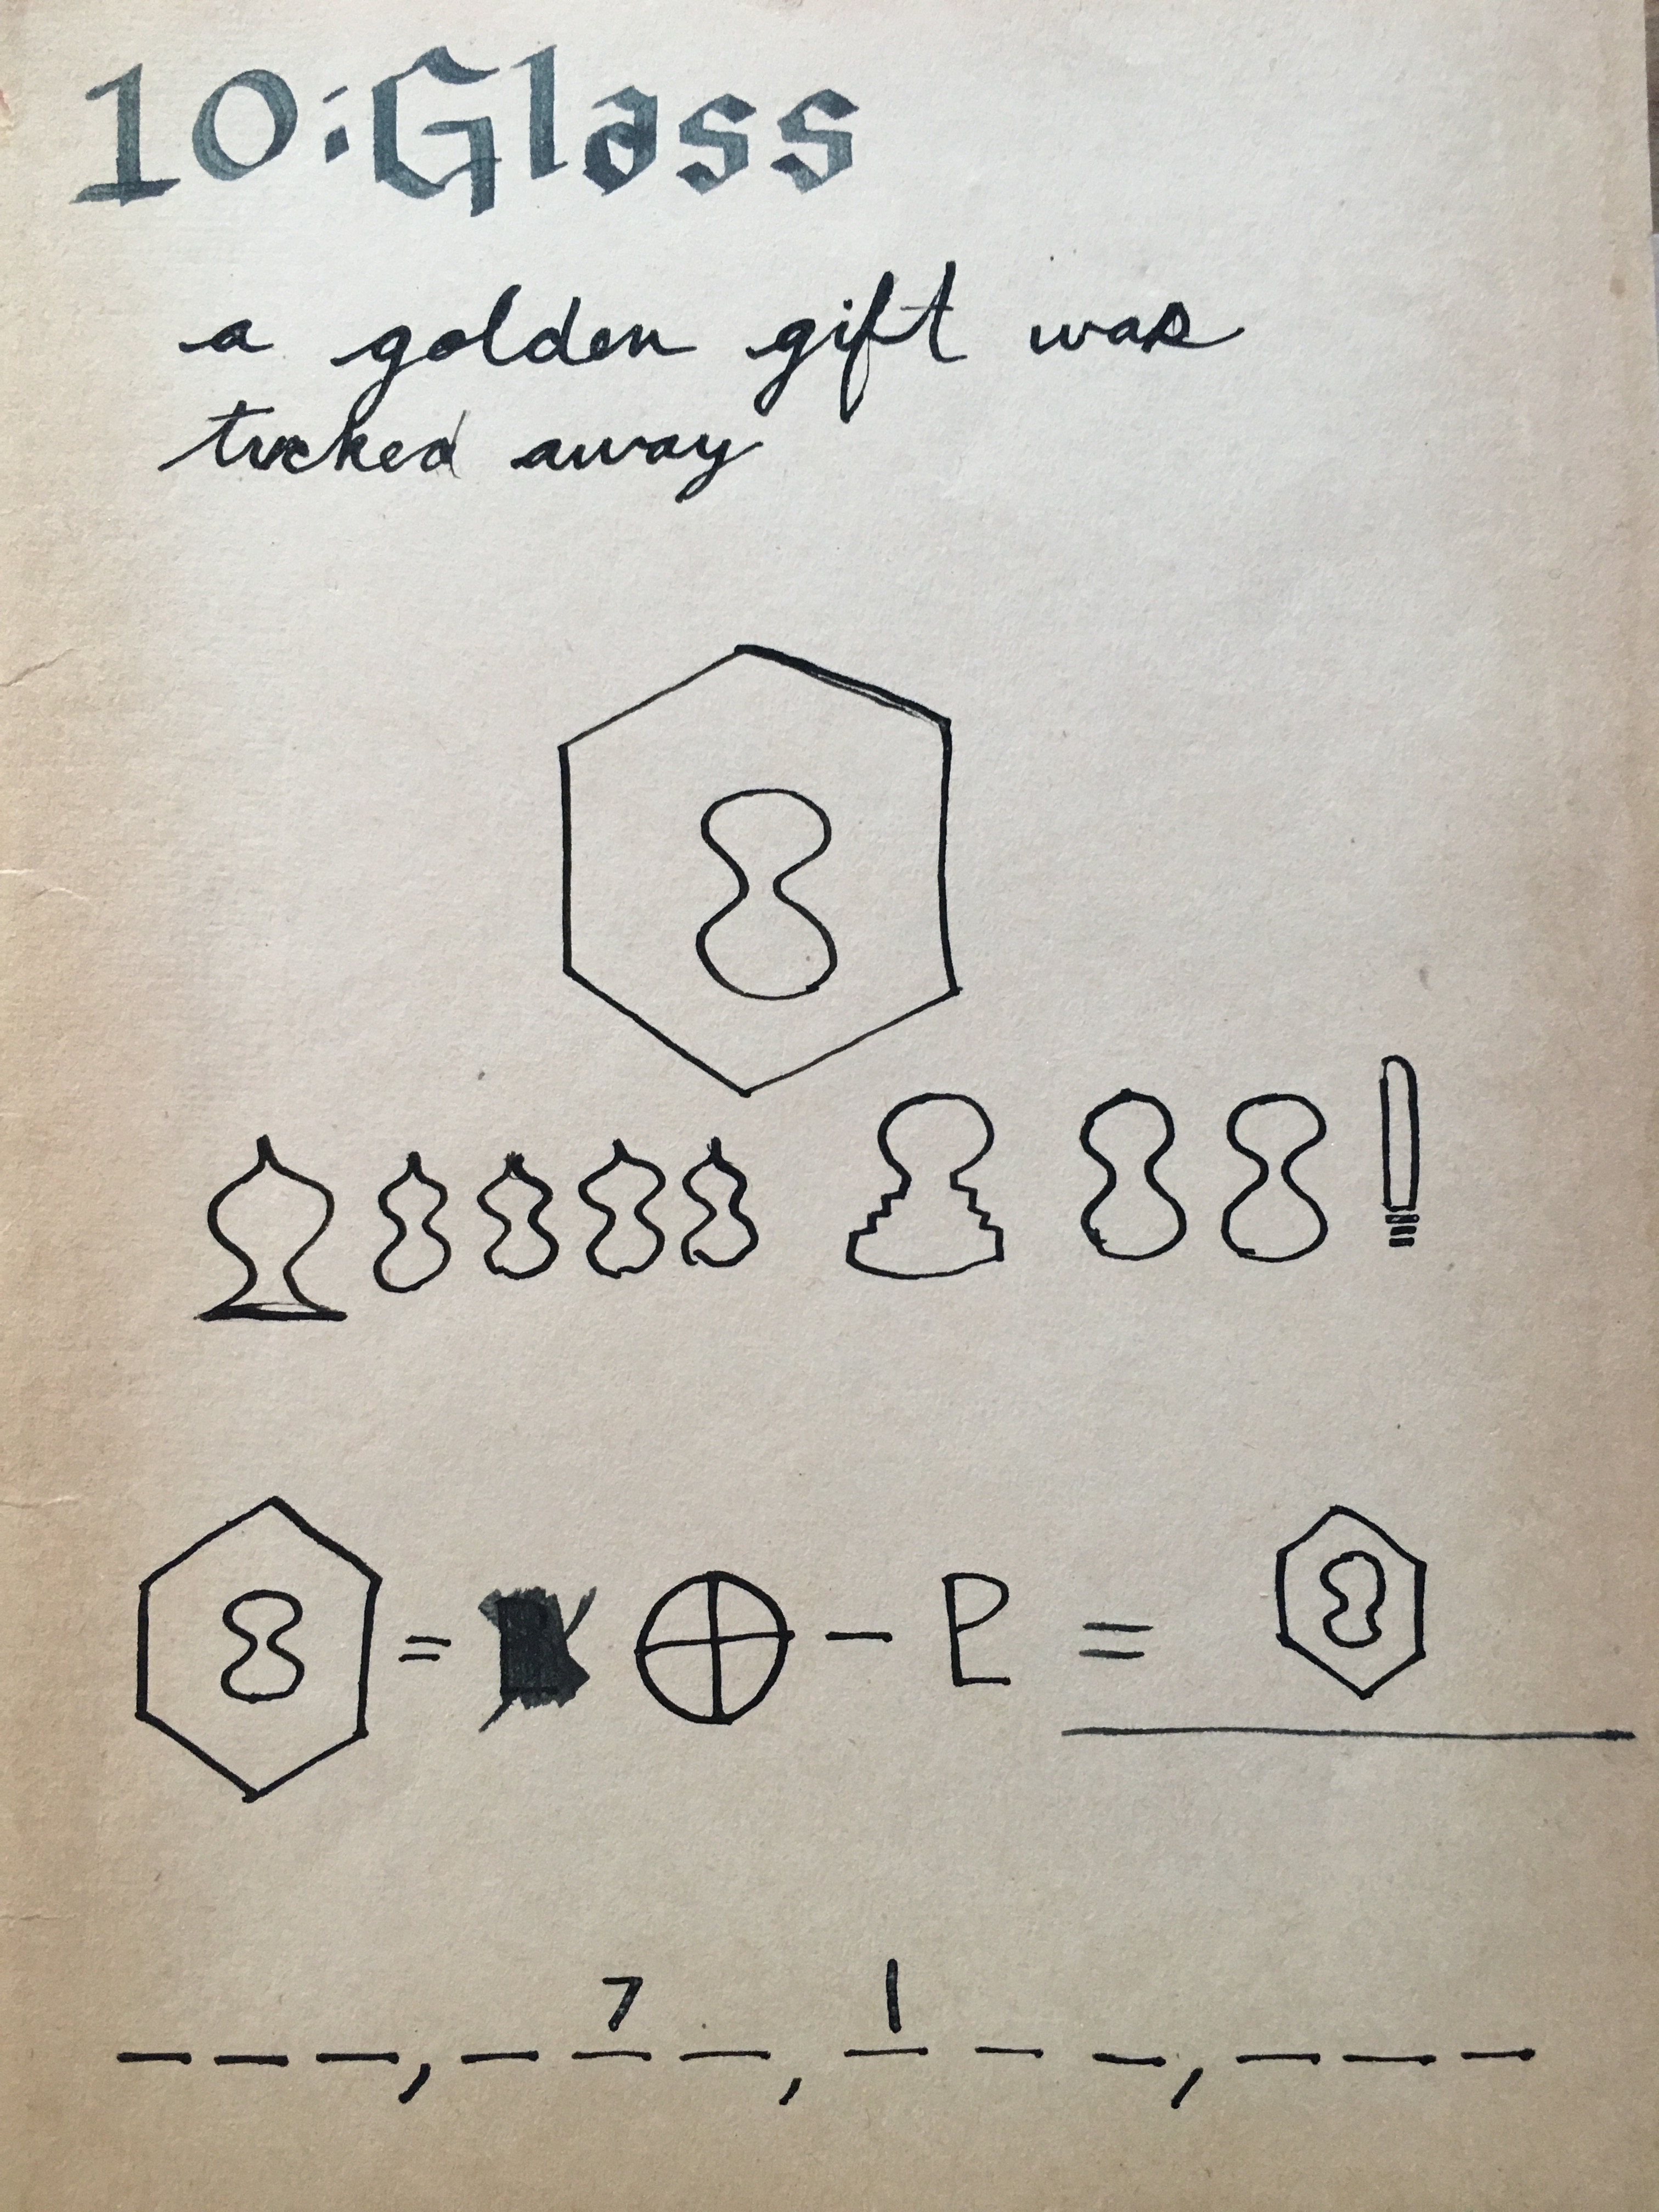 10:Glass
a golden gift was
tucked away
= ⊕ - P =
7 1
_ _ _, _ _ _, _ _ _, _ _ _